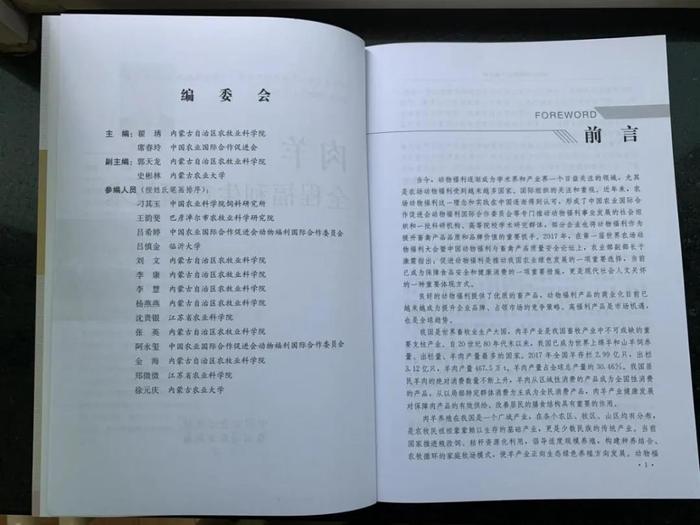 编委会
主 编：瞿 琇 内蒙古自治区农牧业科学院
席春玲 中国农业国际合作促进会
副主编：郭天龙 内蒙古自治区农牧业科学院
史彬林 内蒙古农业大学
参编人员（按姓氏笔画排序）：
刁其玉 中国农业科学院饲料研究所
王韵斐 巴彦淖尔市农牧业科学研究院
吕希婷 中国农业国际合作促进会动物福利国际合作委员会
吕慎金 临沂大学
刘 文 内蒙古自治区农牧业科学院
李 康 内蒙古自治区农牧业科学院
李 慧 内蒙古自治区农牧业科学院
杨燕燕 内蒙古自治区农牧业科学院
沈贵银 江苏省农业科学院
张 英 内蒙古自治区农牧业科学院
阿永玺 中国农业国际合作促进会动物福利国际合作委员会
金 海 内蒙古自治区农牧业科学院
郑微微 江苏省农业科学院
徐元庆 内蒙古农业大学
FOREWORD
前 言
当今，动物福利逐渐成为学术界和产业界一个日益关注的领域，尤其
是农场动物福利受到越来越多国家、国际组织的关注和重视。近年来，农
场动物福利这一理念和实践在中国逐渐得到认可，形成了中国农业国际合
作促进会动物福利国际合作委员会等专门推动动物福利事业发展的社会组
织和一批科研机构、高等院校学术研究群体，部分企业也将动物福利作为
提升畜禽产品品质和品牌价值的重要抓手。2017年，在第一届世界农场动
物福利大会暨中国动物福利与畜禽产品质量安全论坛上，农业部副部长于
康震指出：促进动物福利是推动我国农业绿色发展的一项重要选择，当前
已成为保障食品安全和健康消费的一项重要措施，更是现代社会人文关怀
的一种重要体现方式。
良好的动物福利提供了优质的畜产品，动物福利产品的商业化目前已
越来越成为提升企业品牌、占领市场的竞争策略。高福利产品是市场机遇，
也是全球趋势。
我国是世界畜牧业生产大国，肉羊产业是我国畜牧产业中不可或缺的重
要支柱产业。自20世纪80年代末以来，我国已成为世界上绵羊和山羊饲养
量、出栏量、羊肉产量最多的国家。2017年全国羊存栏2.99亿只，出栏
3.12亿只，羊肉产量467.5万t，羊肉产量占全球总产量的30.46%。我国居
民羊肉的绝对消费数量不断上升，羊肉从区域性消费的产品成为全国性消费
的产品，从以局部特定群体消费为主成为全民消费产品，肉羊产业健康发展
对保障肉产品的有效供给、改善居民的膳食结构具有重要的作用。
肉羊养殖在我国是一个广域产业，在各个农区、牧区、山区均有分布，
是农牧民祖祖辈辈赖以生存的基础产业，更是少数民族的传统产业。当前
国家推进粮改饲、秸秆资源化利用，倡导适度规模养殖，构建种养结合、
农牧循环的家庭牧场模式，使羊产业正向生态绿色养殖方向发展。动物福
·1·